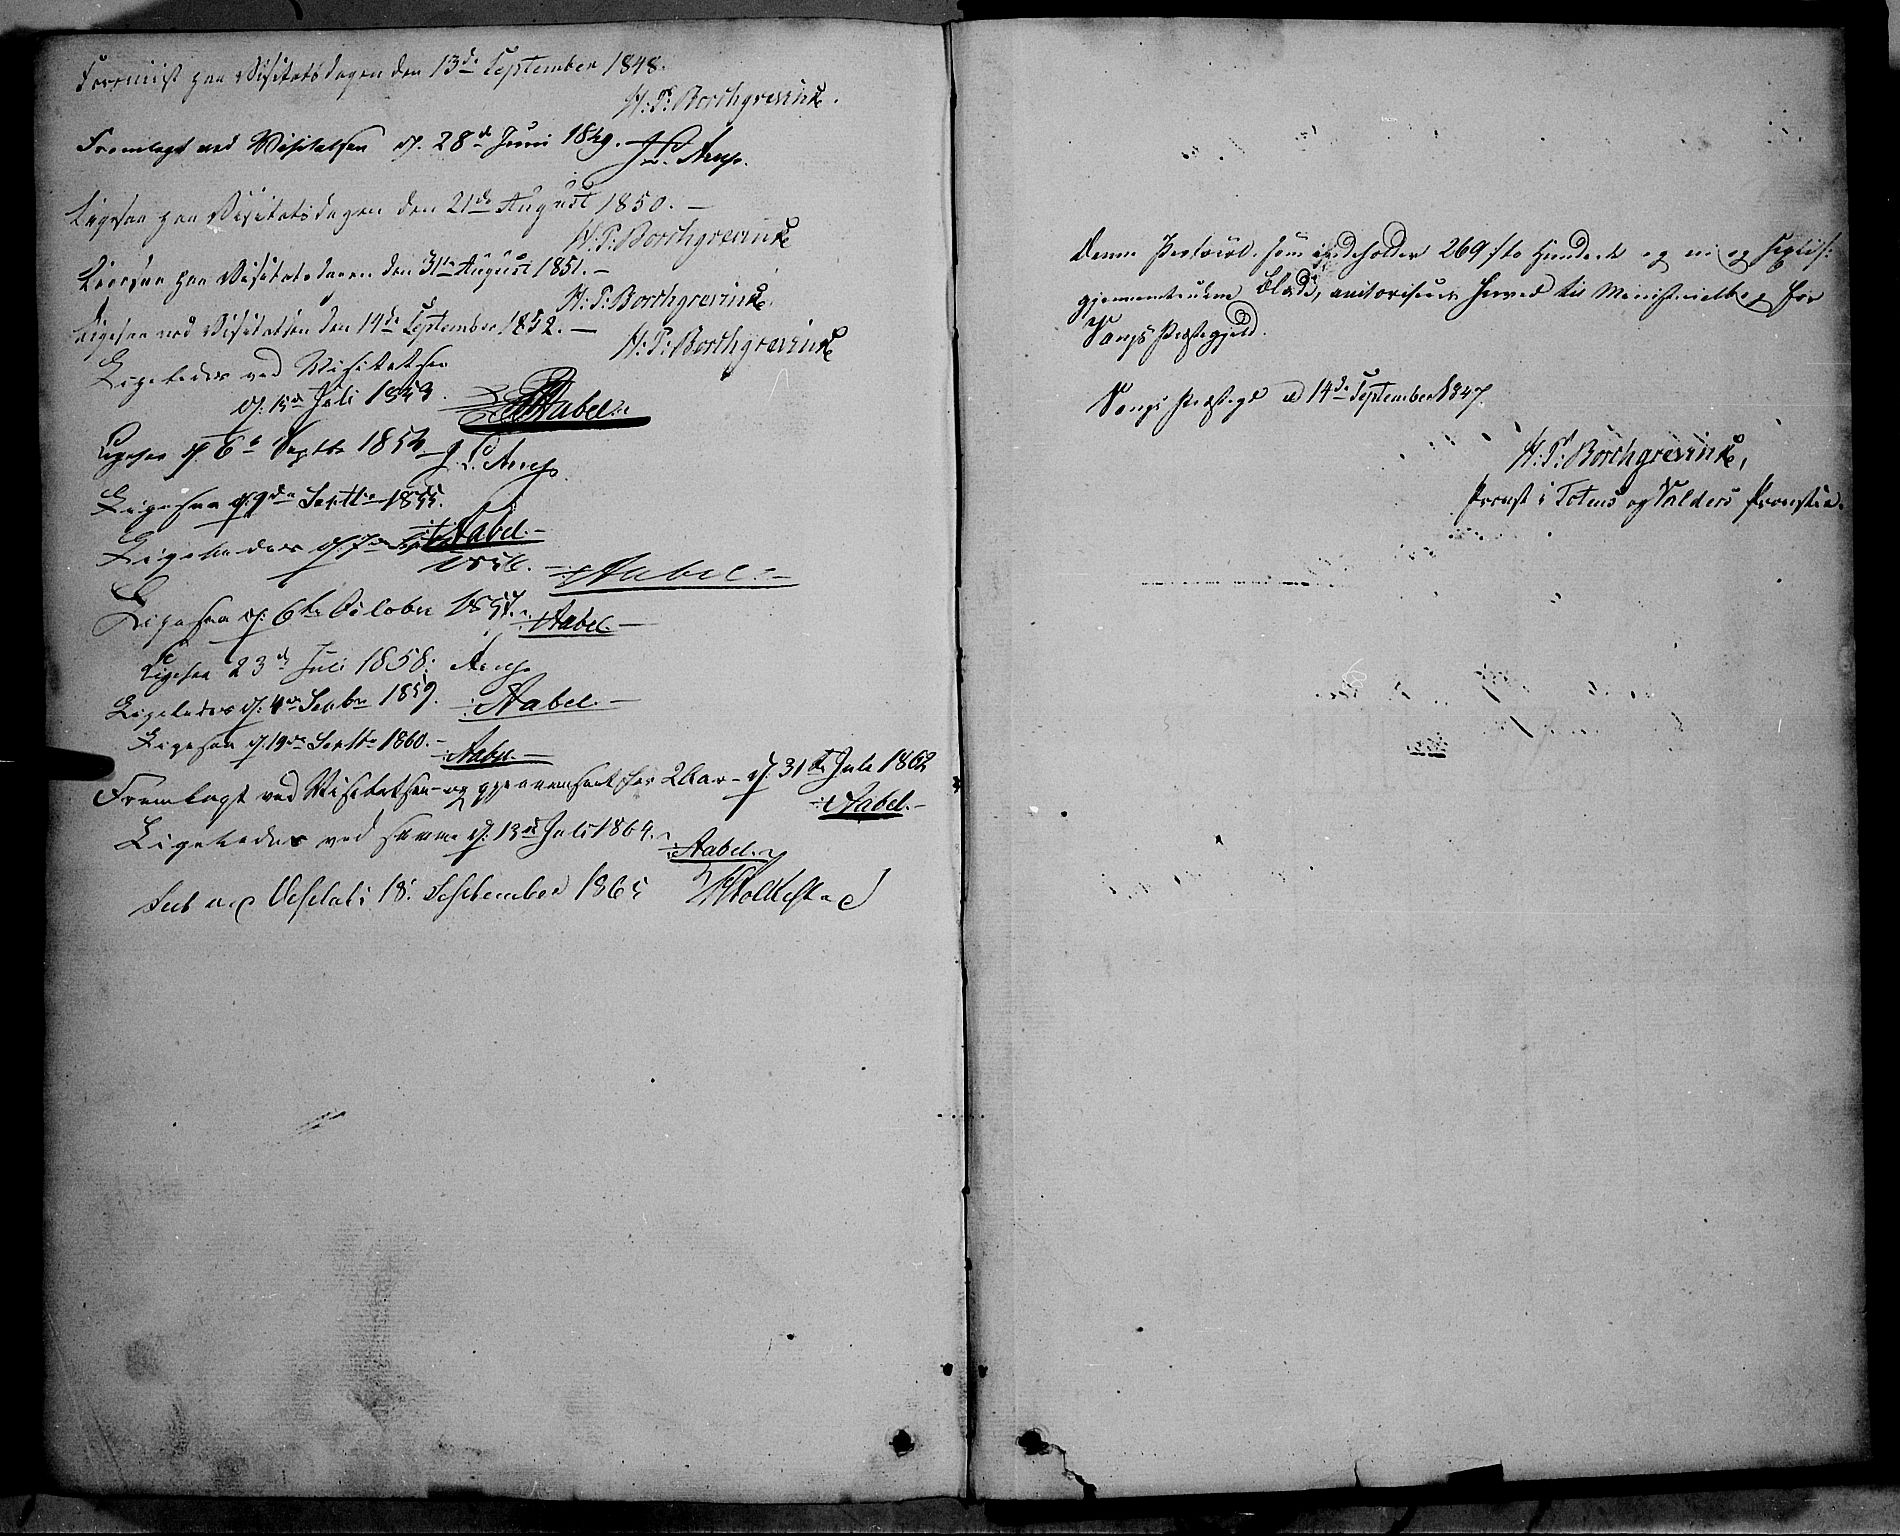 Foreviist paa Visitatsdagen den 13de September 1848.
H: P: Borchgrevink.
Fremlagt ved Visitatsen d. 28de Juni 1849. J. L. Arup.
Ligesaa paa Visitatsdagen den 21de August 1850. –
H: P: Borchgrevink
Ligesaa paa Visitatsdagen den 31te August 1851. –
H: P: Borchgrevink.
Ligesaa ved Visitatsen den 14de September 1852. –
H: P: Borchgrevink
Ligeledes ved Visitatsen
d. 15de Juli 1853. Aabel.
Ligesaa d. 6te Septbr 1854 J. L. Arup.
Ligesaa d. 9de Septbr 1855.
Aabel. –
Ligeledes d. 7de
1856. – Aabel. –
Ligesaa d. 6te October 1857. Aabel. –
Ligesaa 23de Juli 1858: Arup
Ligeledes d. 4de Septbr 1859. Aabel. –
Ligesaa d. 19de Septbr 1860. –
Aabel. –
Fremlagt ved Visitatsen – og gjennemseet for 2 Aar – d. 31te Juli 1862
Aabel. –
Ligeledes ved samme d. 13de Juli 1864. Aabel.
Seet ved Visitats 18. September 1865 Folkestad
Denne Protocol, som indeholder 269 /to Hundrede og ni og sextis:
gjennemtrukne Blade, autoriseres herved til Ministerialbog for
Vangs Præstegjeld.
Vangs Præstegd d 14de September 1847.
H: P: Borchgrevink,
Provst i Totens og Valders Provstie.